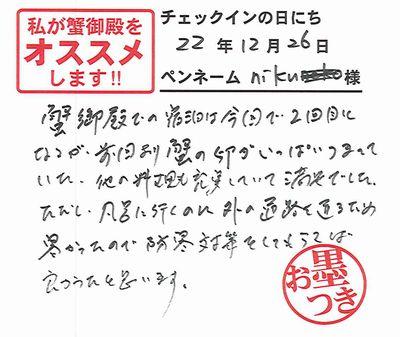 私が蟹御殿を
オススメ
します!!
チェックインの日にち
22 年 12 月 26 日
ペンネーム niku 様
蟹御殿での宿泊は今回で2回目に
なるが、前回より蟹の卵がいっぱいつまって
いた。他の料理も充実していて満足でした。
ただし、風呂に行くのに外の通路を通るため
寒かったので防寒対策をしてもらえれば
良かったと思います。
お墨つき